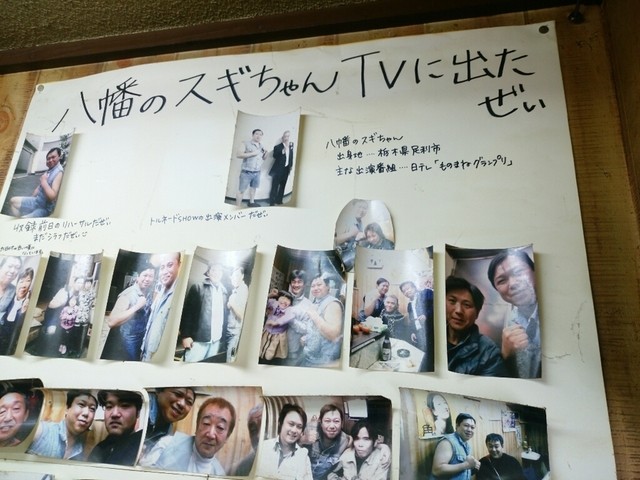 八幡のスギちゃんTVに出た
ぜぃ
八幡のスギちゃん
出身地…栃木県足利市
主な出演番組…日テレ「ものまねグランプリ」
収録前日のリハーサルだぜぃ
まだシラフだぜぃ
トルネードSHOWの出演メンバーだぜぃ